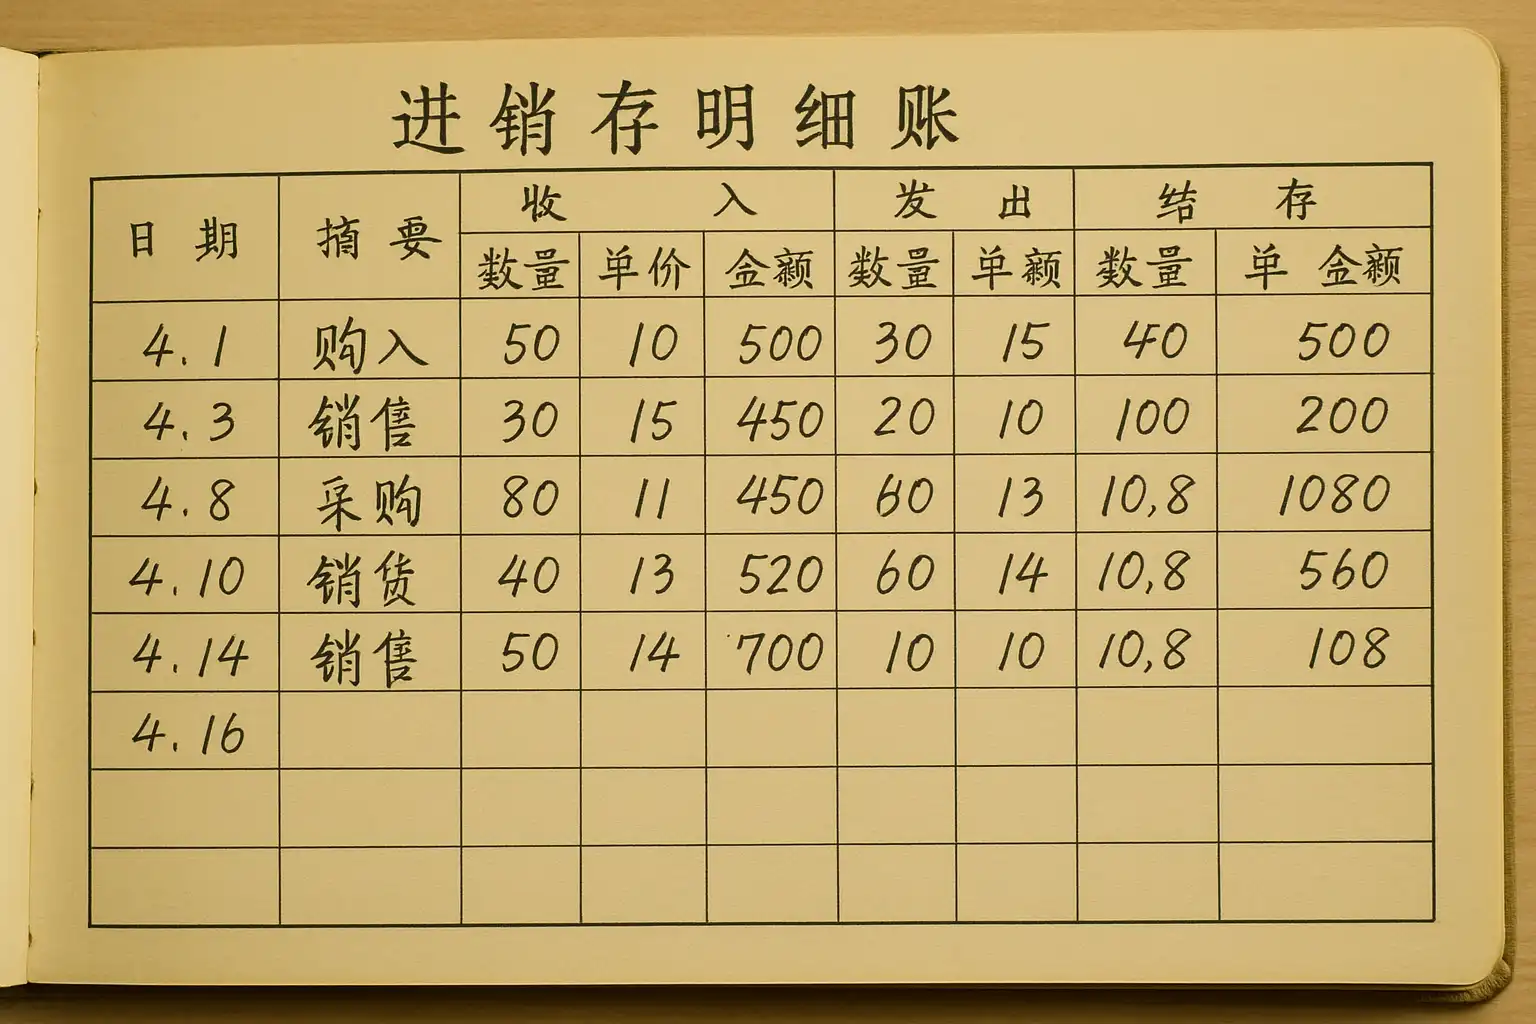 进销存明细账
日期 摘要 收入 发出 结存
数量 单价 金额 数量 单额 数量 单 金额
4.1 购入 50 10 500 30 15 40 500
4.3 销售 30 15 450 20 10 100 200
4.8 采购 80 11 450 60 13 10,8 1080
4.10 销货 40 13 520 60 14 10,8 560
4.14 销售 50 14 700 10 10 10,8 108
4.16